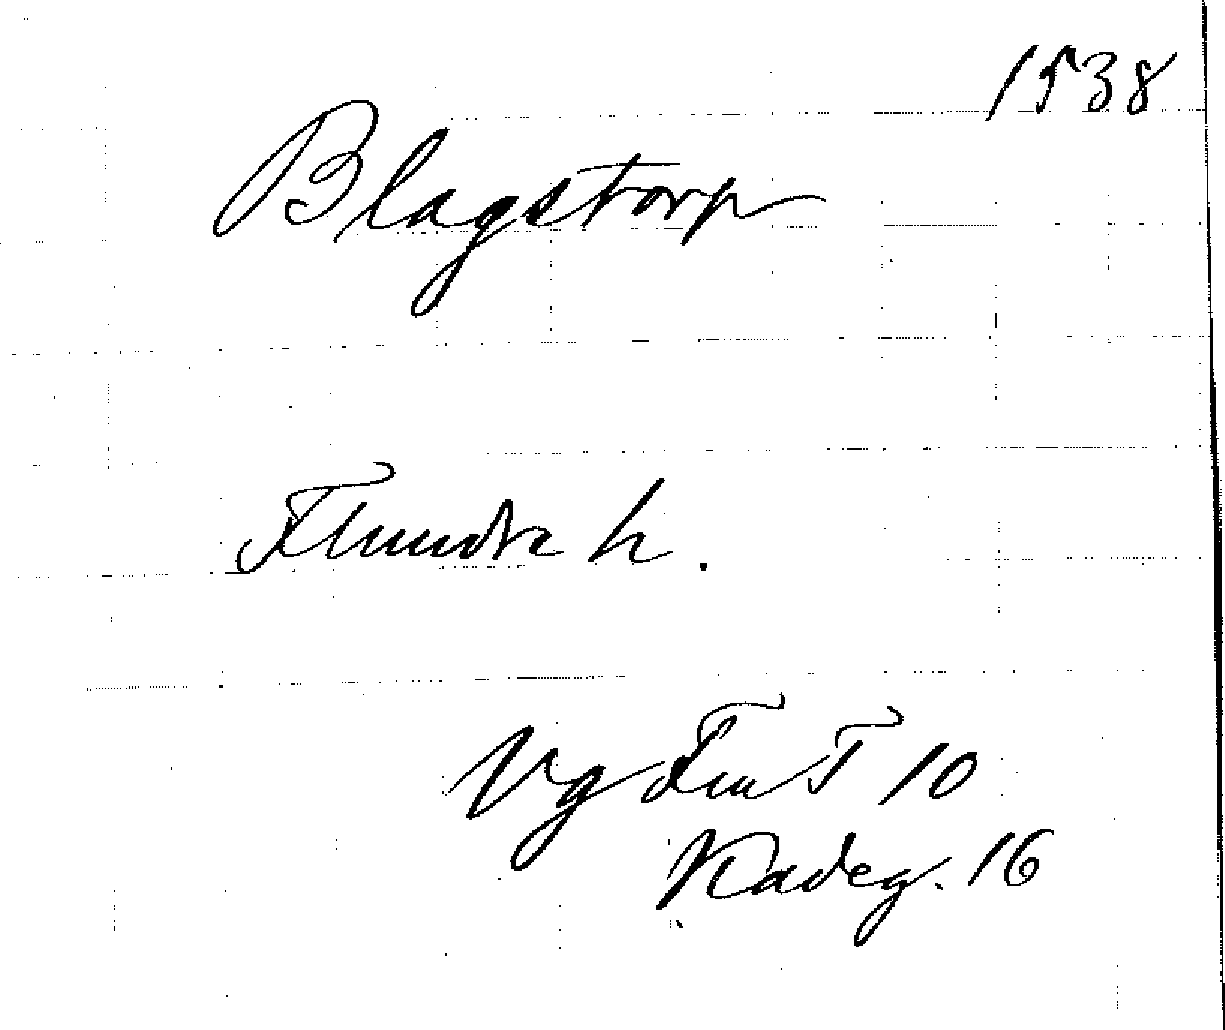 1538
Blagstorp
Flundre h.
Vg 10
Kadeg. 16